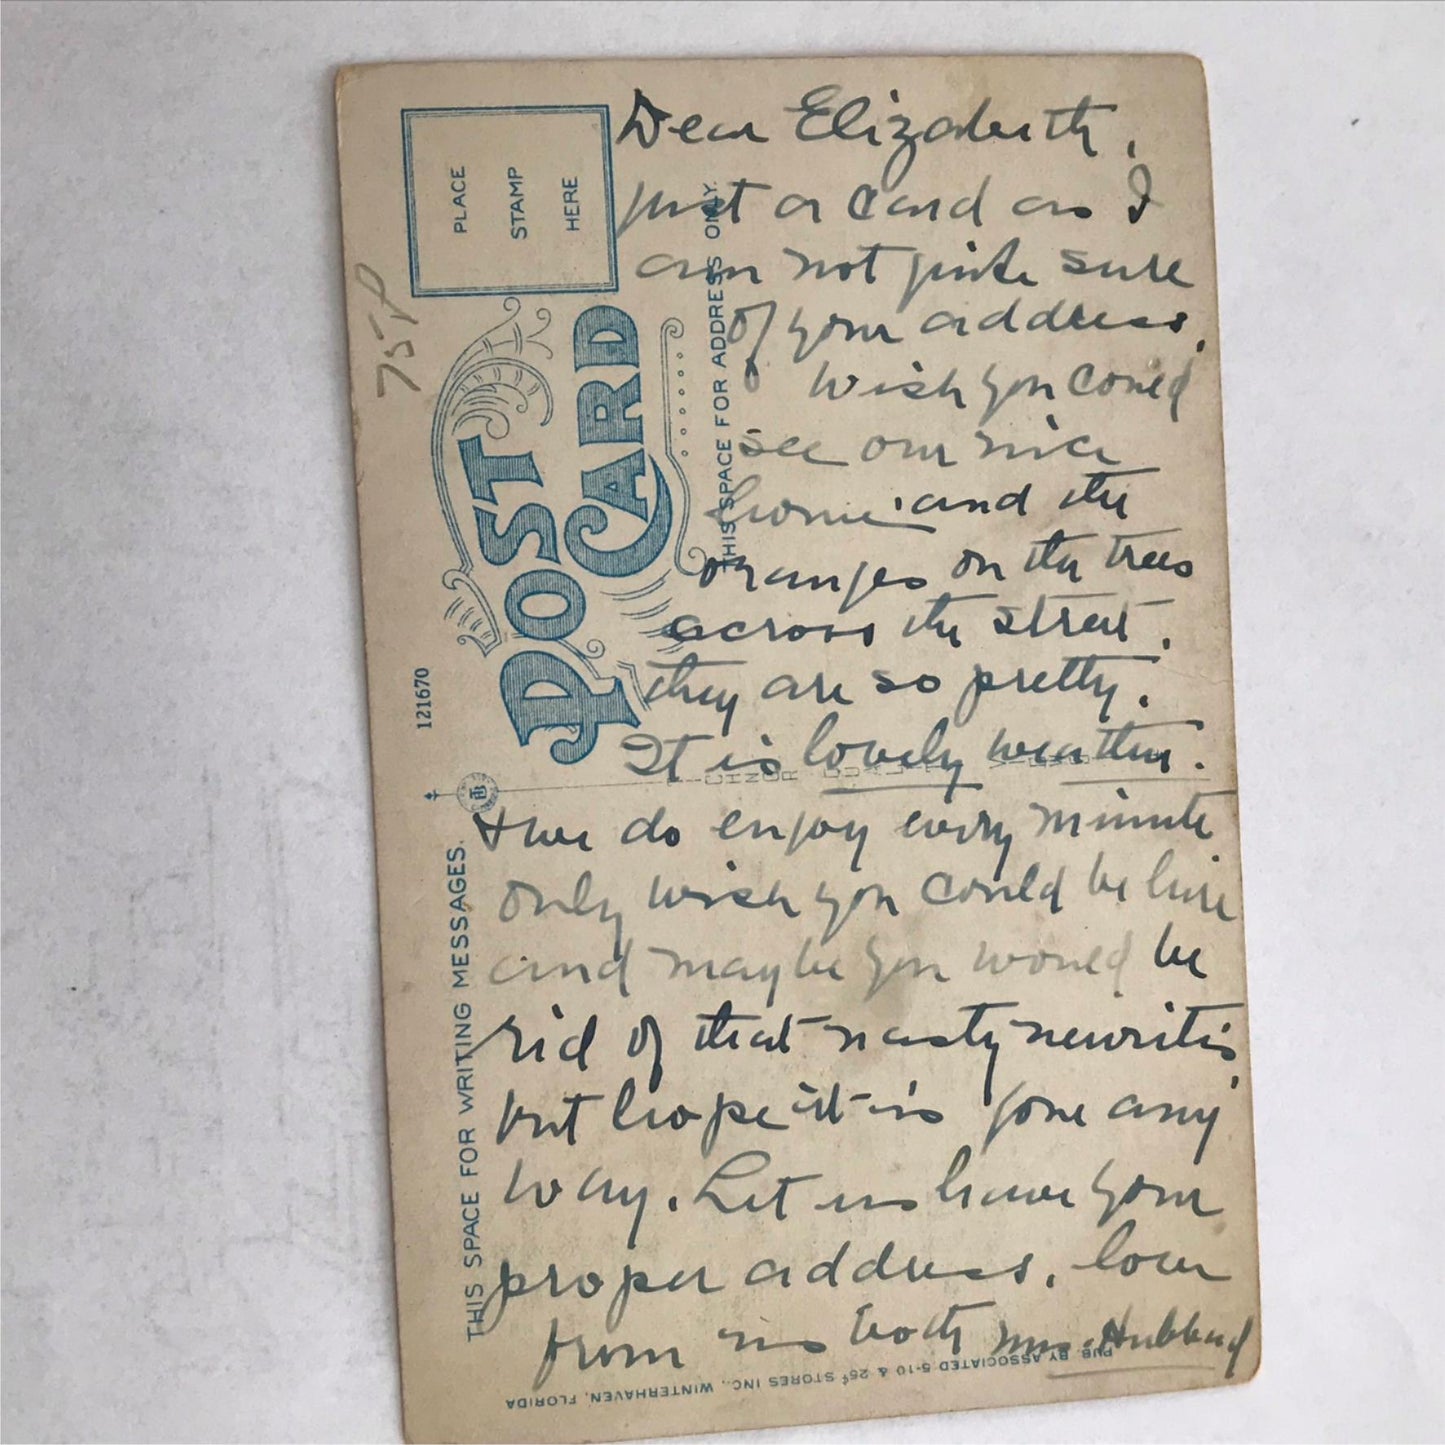 Dear Elizabeth,
just a card as I
am not quite sure
of your address.
Wish you could
see our nice
home and the
oranges on the trees
across the street.
they are so pretty.
It is lovely weather.
+ we do enjoy every minute
only wish you could be here
and maybe you would be
rid of that nasty neuritis,
but hope it is gone any
way. Let us have your
proper address. love
from us both Mrs. Hubbard
PLACE
STAMP
HERE
POST
CARD
THIS SPACE FOR ADDRESS ONLY.
75¢
121670
THIS SPACE FOR WRITING MESSAGES.
PUB. BY ASSOCIATED 5-10 & 25¢ STORES INC., WINTERHAVEN, FLORIDA